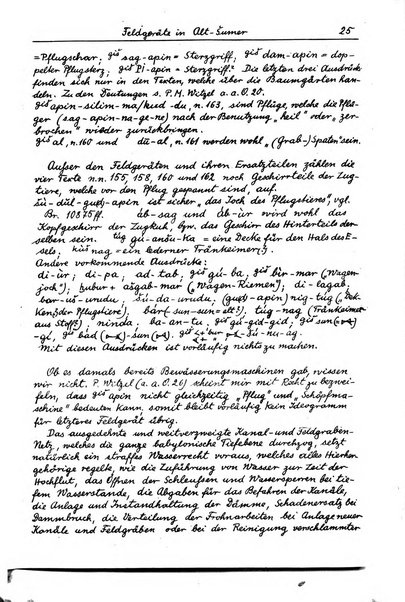 Feldgeräte in Alt-Sumer 25
=Pflugschar; giš sag-apin = Sterzgriff; giš dam-apin = dop-
pelter Pflugsterz; giš PI-apin = Sterzgriff. Die letzten drei Ausdrücke
finden sich nur in den Texten, welche über die Baumgärten han-
deln. Zu den Deutungen s. P. M. Witzel a.a.O. 20.
giš apin-silim-ma/kud-du, n.163, sind Pflüge, welche die Pflü-
ger (sag-apin-na-ge-ne) nach der Benutzung „heil" oder „zer-
brochen" wieder zurückbringen.
giš al, n.160 und dù-al, n.161 werden wohl „(Grab-)Spaten" sein.
Ausser den Feldgeräten und ihren Ersatzteilen zählen die
vier Texte n.n. 155, 158, 160 und 162 noch Geschirrteile der Zug-
tiere, welche vor den Pflug gespannt sind, auf.
šú-dul-gud-apin ist sicher „das Joch des Pflugstieres", vgl.
Br. 10875ff. áb-sag und áb-úr wird wohl das
Kopfgeschirr der Zugkuh, bzw. das Geschirr des Hinterteils der-
selben sein. túg gú-anšu-ka = eine Decke für den Hals des E-
sels. kuš nag = ein lederner Tränkeimer.
Andere vorkommende Ausdrücke:
di-ùr; di-pa; ad-tab, giš gú-ba, giš bir-mar (Wagen-
joch"); kubur + ašgab-mar („Wagen-Riemen); di-lagab,
bar-uš-urudu, šú-da-urudu, (gud)-apin) níg-túg („Dek-
ken" der Pflugtiere), bár (sun-sun = alt?), túg-nag (Tränkeimer
aus Stoff?); ninda, ba-an-tu, giš gú-gid-gid, giš sun
-gi, giš bàd -sun, giš -šú-nu-ag.
Mit diesen Ausdrücken ist vorläufig nichts zu machen.
Ob es damals bereits Bewässerungsmaschinen gab, wissen
wir nicht. P. Witzel (a.a.O. 26) scheint mir mit Recht zu bezwei-
feln, dass giš apin nicht gleichzeitig „Pflug" und „Schöpfma-
schine" bedeuten kann, somit bleibt vorläufig kein Ideogramm
für letzteres Feldgerät übrig.
Das ausgedehnte und weitverzweigte Kanal- und Feldgraben-
Netz, welches die ganze babylonische Tiefebene durchzog, setzt
natürlich ein straffes Wasserrecht voraus, welches alles Hierher-
gehörige regelte, wie die Zuführung von Wasser zur Zeit der
Hochflut, das Öffnen der Schleussen und Wassersperren bei tie-
fem Wasserstande, die Abgaben für das Befahren der Kanäle,
die Anlage und Instandhaltung der Dämme, Schadenersatz bei
Dammbruch, die Verteilung der Frohnarbeiten bei Anlage neuer
Kanäle und Feldgräben oder bei der Reinigung verschlammter